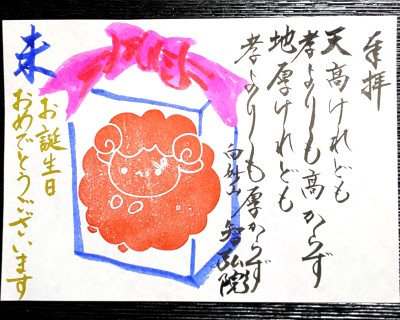 奉拝
天高けれども
孝よりも高からず
地厚けれども
孝よりも厚からず
智弘院
未
お誕生日
おめでとうございます